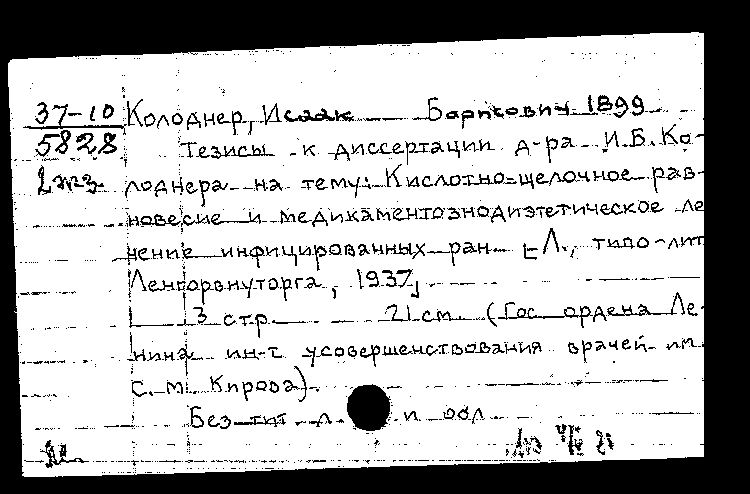 37-10 Колоднер, Исаак Борисович 1899
5828 Тезисы к диссертации д-ра И.Б. Ко-
2 экз. лоднера на тему: Кислотно-щелочное рав-
новесие и медикаментознодиэтетическое ле
чение инфицированных ран [Л., типо-лит
Ленгорвнуторга, 1937]
3 стр. 21 см. (Гос. ордена Ле-
нина ин-т усовершенствования врачей им.
С. М. Кирова).
Без тит. л. и обл.